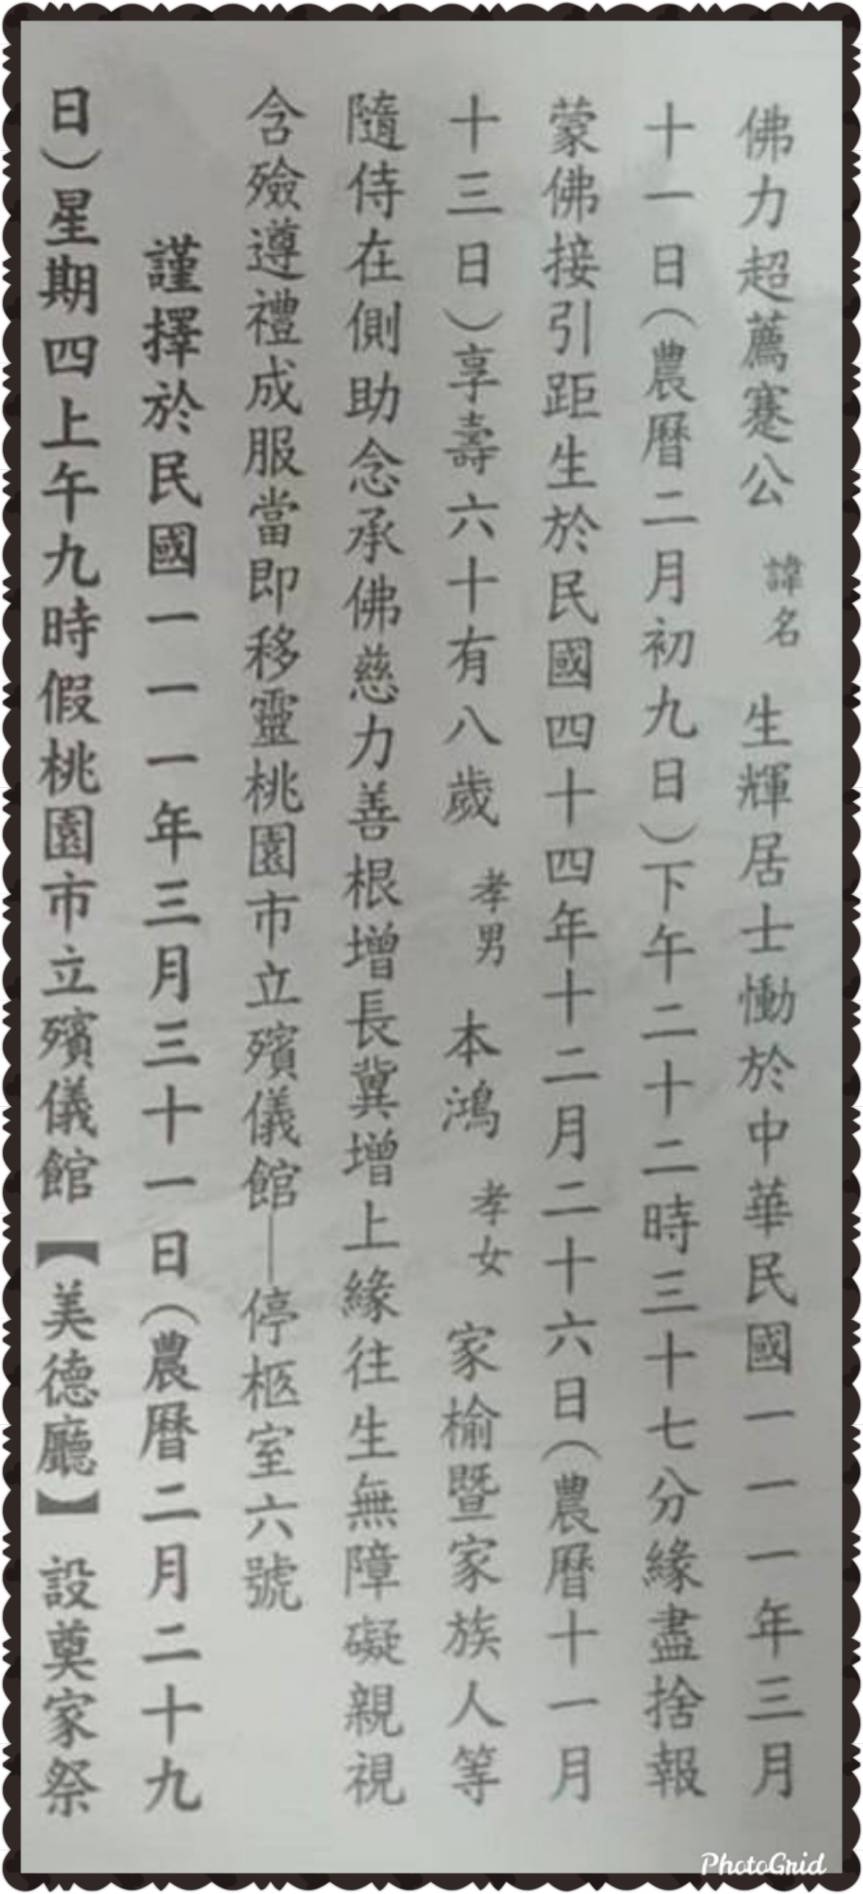 佛力超薦蹇公 諱名 生輝居士慟於中華民國一一一年三月
十一日（農曆二月初九日）下午二十二時三十七分緣盡捨報
蒙佛接引距生於民國四十四年十二月二十六日（農曆十一月
十三日）享壽六十有八歲 孝男 本鴻 孝女 家榆暨家族人等
隨侍在側助念承佛慈力善根增長冀增上緣往生無障礙親視
含殮遵禮成服當即移靈桃園市立殯儀館—停柩室六號
謹擇於民國一一一年三月三十一日（農曆二月二十九
日）星期四上午九時假桃園市立殯儀館【美德廳】設奠家祭
PhotoGrid